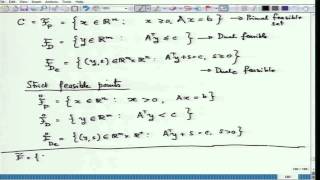 C = F_P = { x ∈ R^n : x ≥ 0, Ax = b } → Primal feasible set
F_D = { y ∈ R^m : A^T y ≤ c } → Dual feasible
F_De = { (y,s) ∈ R^m × R^n : A^T y + s = c, s ≥ 0 } → Dual feasible
Strict feasible points
F°_P = { x ∈ R^n : x > 0, Ax = b }
F°_D = { y ∈ R^m : A^T y < c }
F°_De = { (y,s) ∈ R^m × R^n : A^T y + s = c, s > 0 }
F = { :